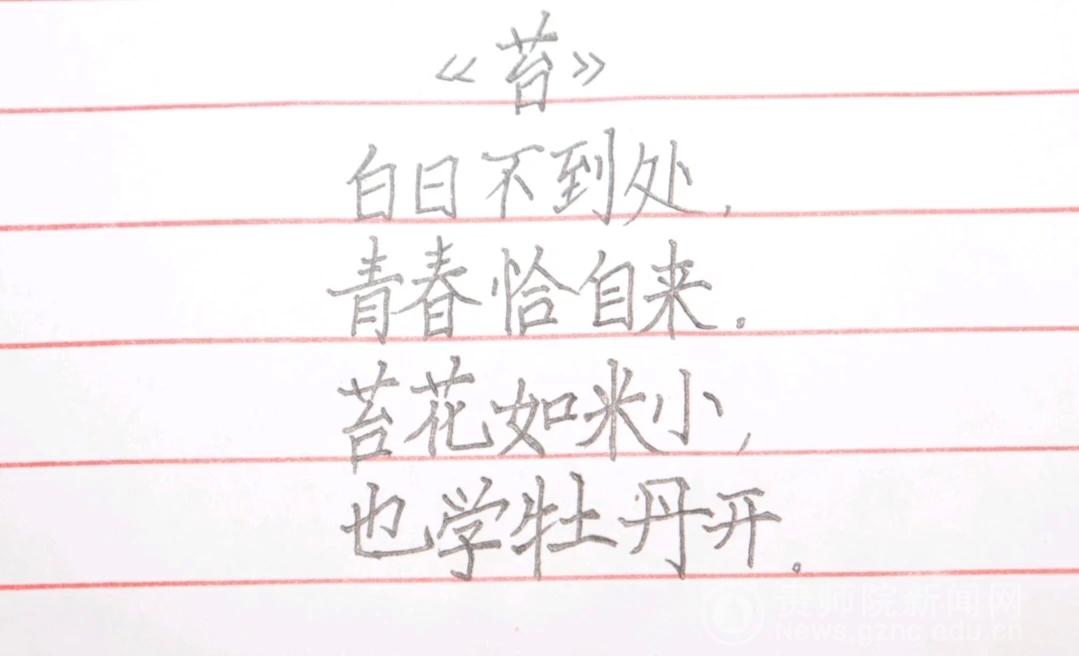 《苔》
白日不到处,
青春恰自来.
苔花如米小,
也学牡丹开。
贵师院新闻网
News.gznc.edu.cn